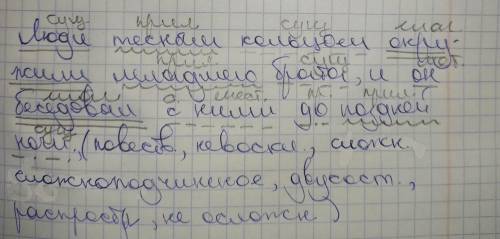 сущ. прил. сущ. глаг.
Люди тесным кольцом окру-
прил. сущ. мест.
жили младшего брата, и он
мест. пр. прил.
беседовал с ними до поздней
сущ.
ночи. (повеств, невоскл., сложн.
сложноподчиненное, двусост.,
распростр, не осложн)